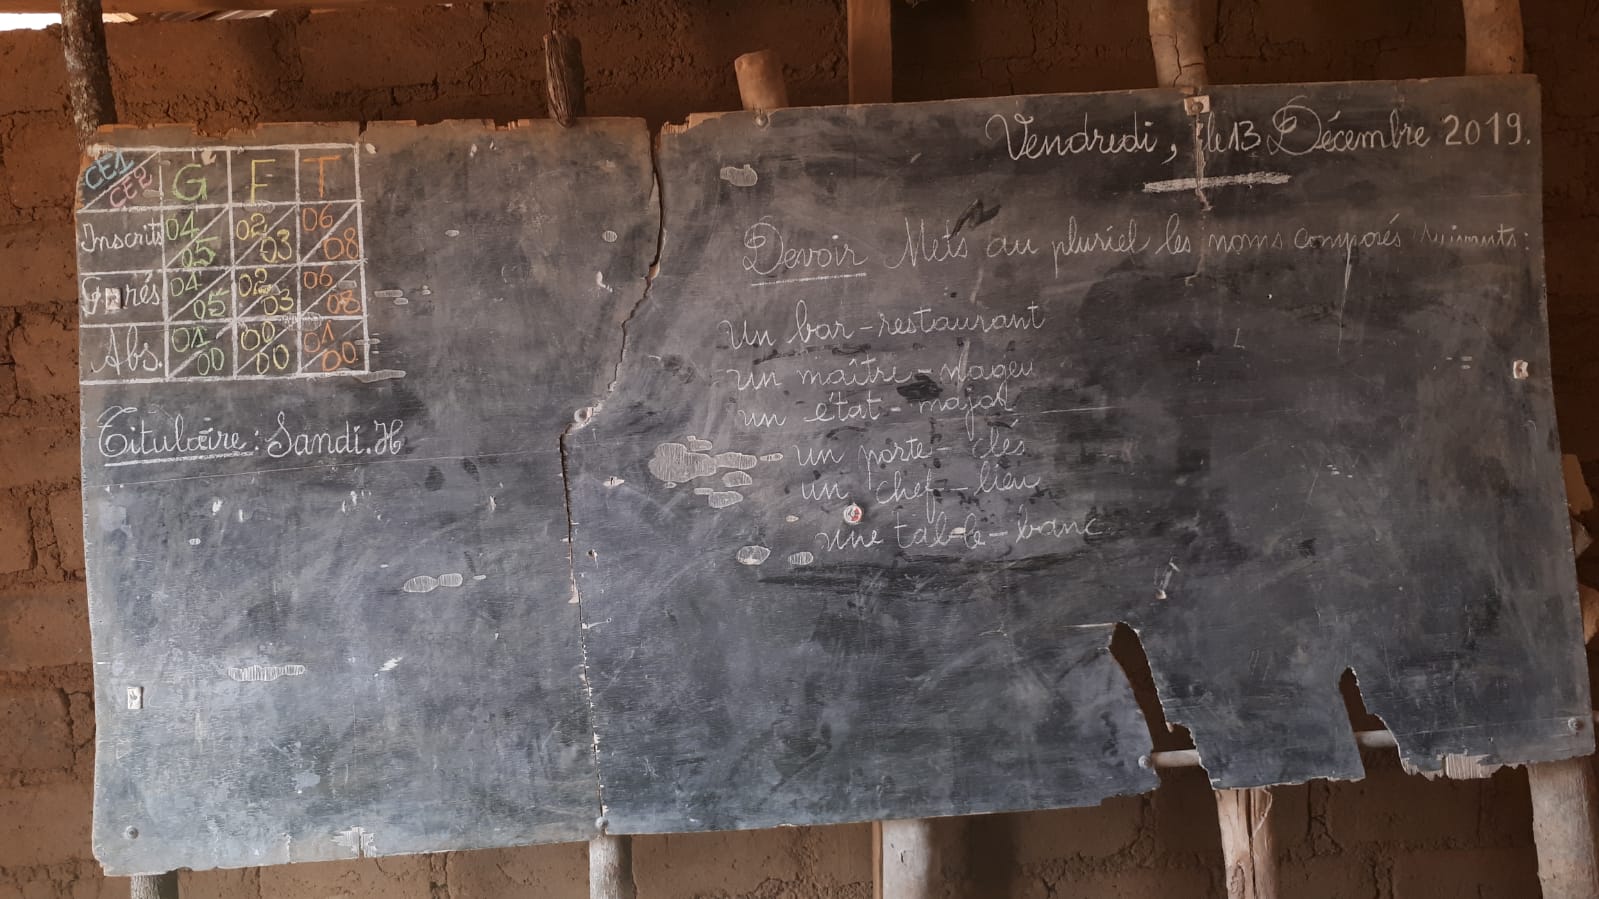 CE1 CE2 G F T
Inscrits 04 05 02 03 06 08
G rés 04 05 02 03 06 08
Abs. 01 00 00 00 01 00
Titulaire : Sandi.H
Vendredi, le 13 Décembre 2019.
Devoir Mets au pluriel les noms composés suivants :
un bar-restaurant
un maître-nageu
un état-major
un porte-clés
un chef-lieu
une table-banc